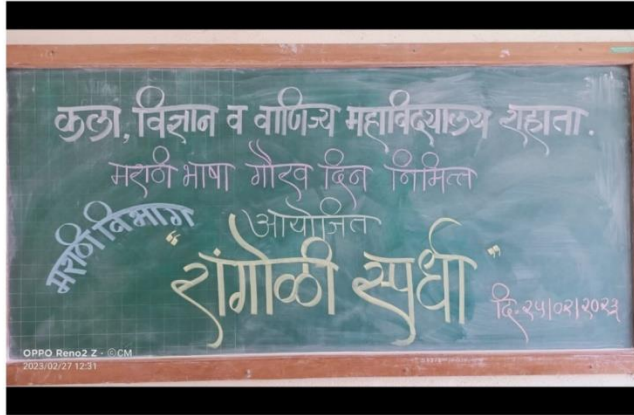 कला, विज्ञान व वाणिज्य महाविद्यालय राहाता.
मराठी भाषा गौरव दिन निमित्त
मराठी विभाग
आयोजित
"रांगोळी स्पर्धा"
दि. २५/०२/२०२३
OPPO Reno2 Z · ©CM
2023/02/27 12:31